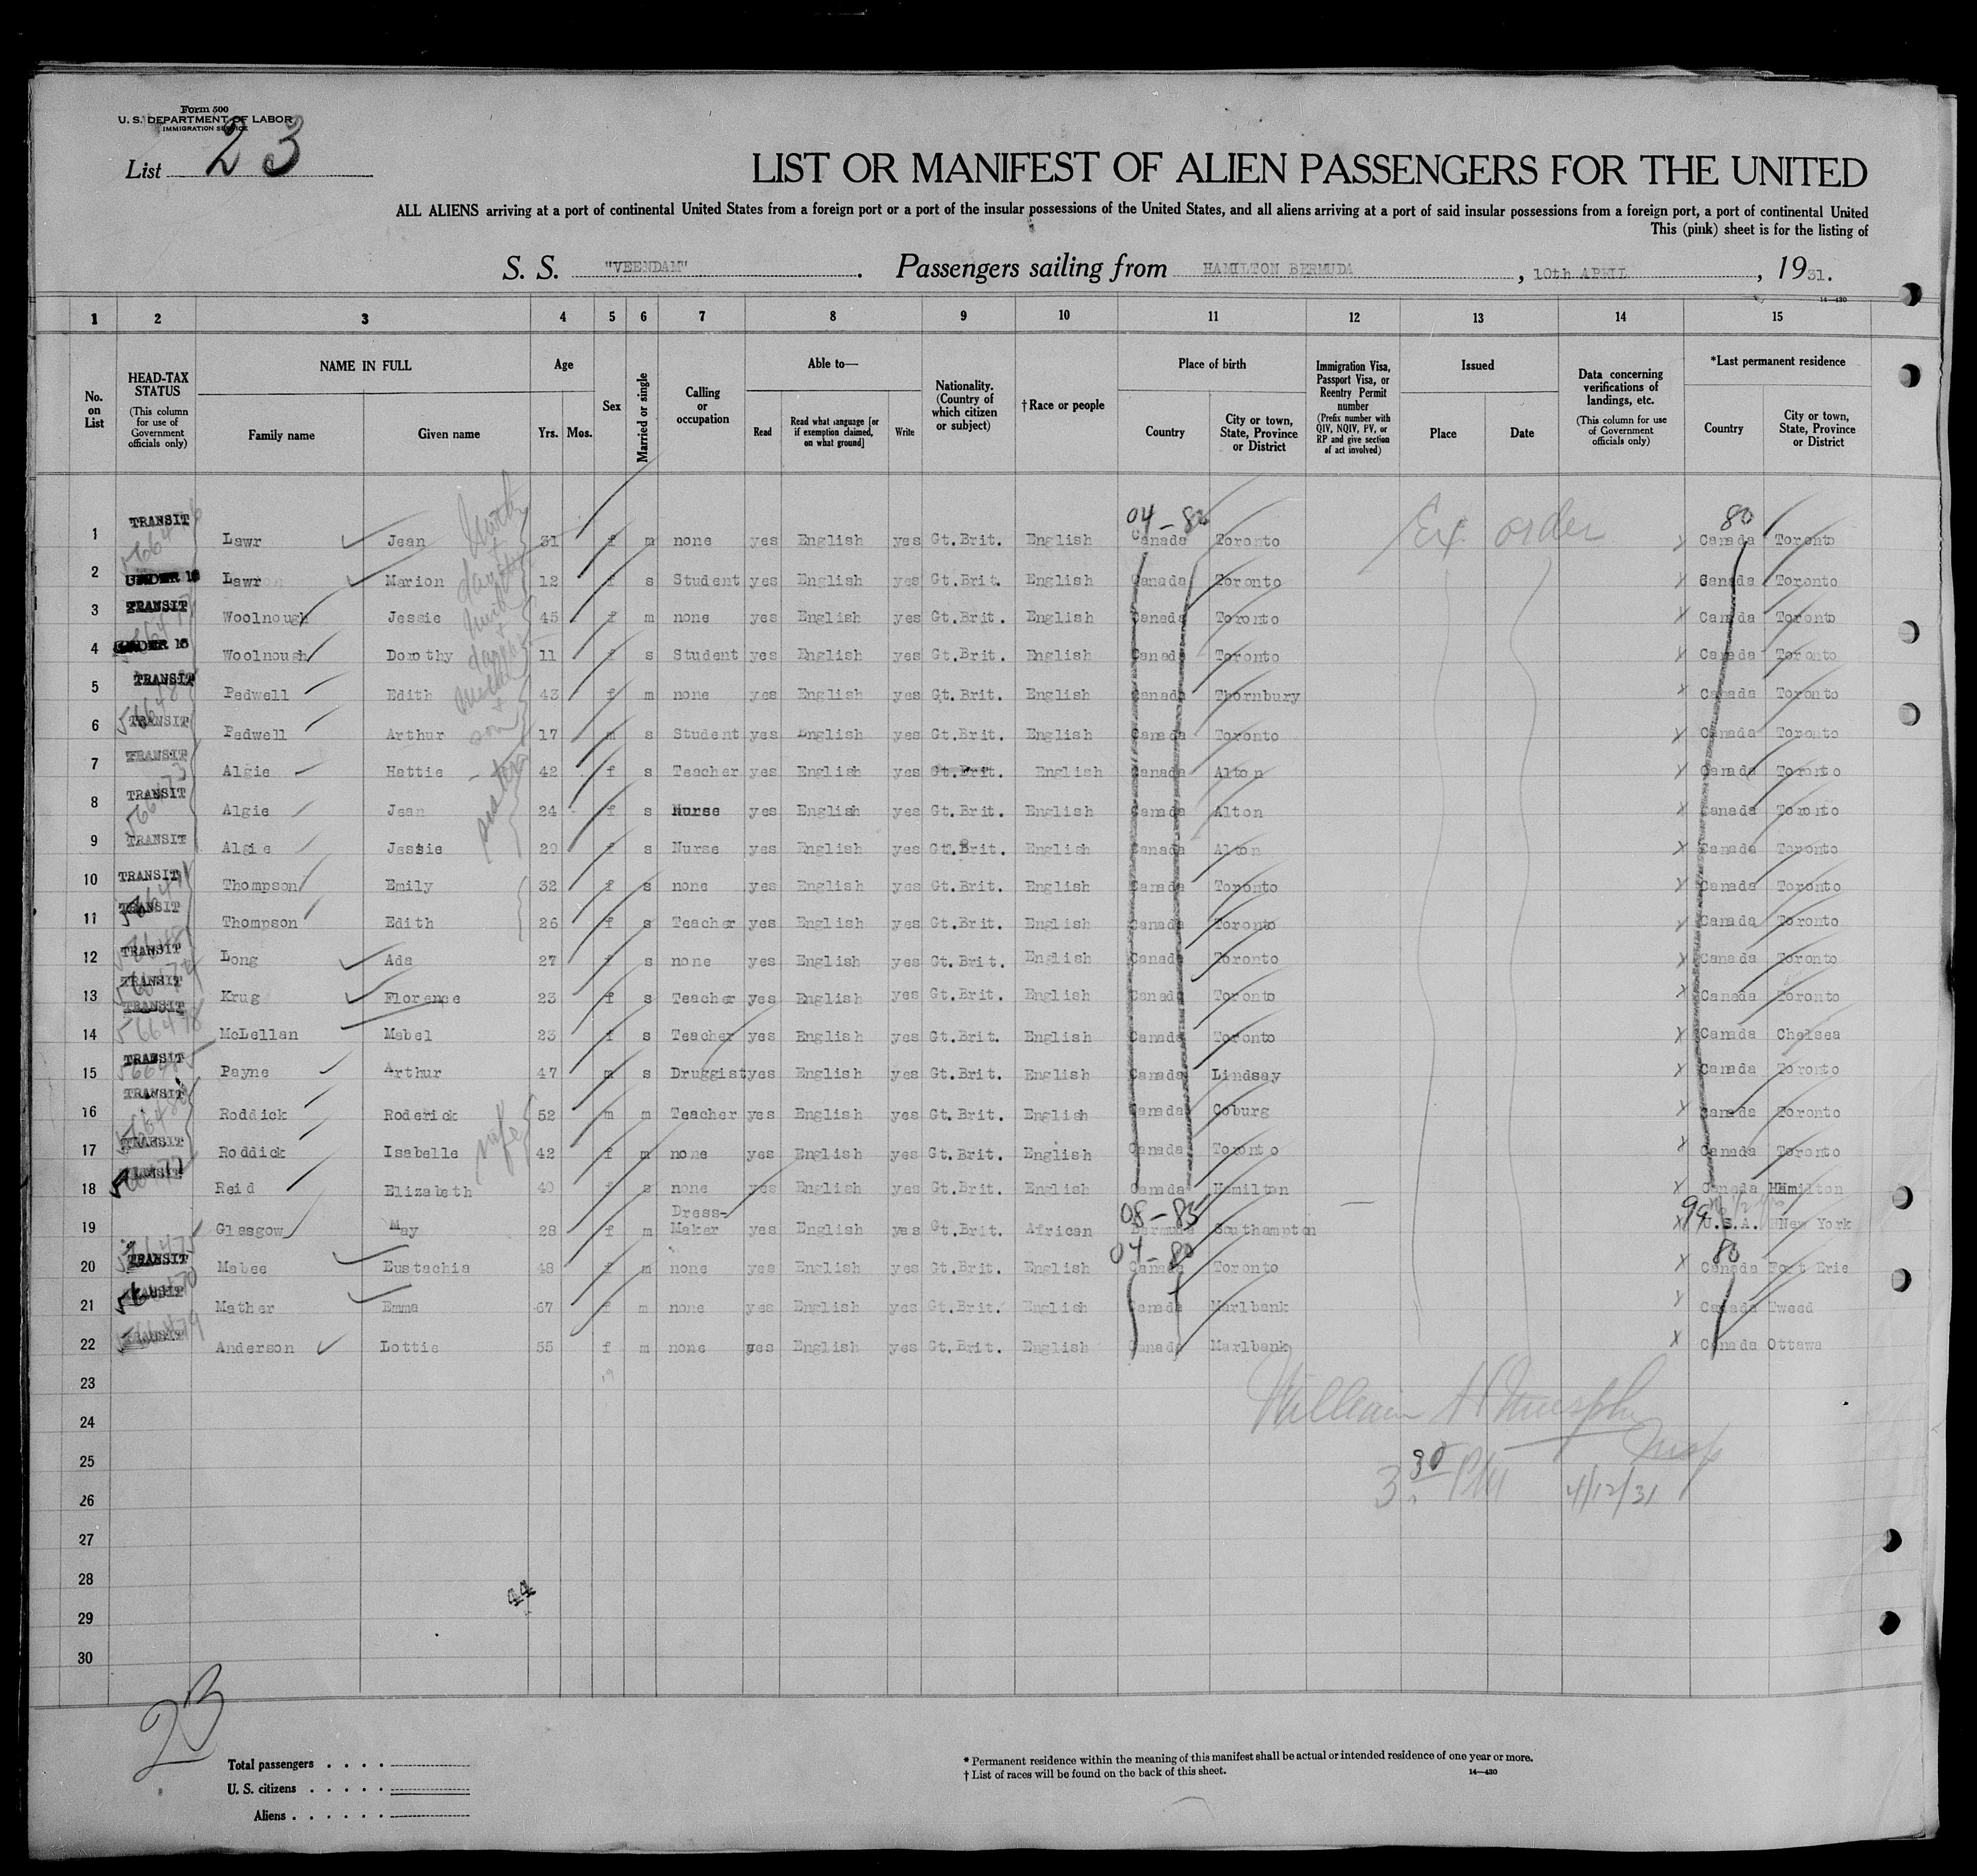 Form 500
U. S. DEPARTMENT OF LABOR
IMMIGRATION SERVICE
List 23
LIST OR MANIFEST OF ALIEN PASSENGERS FOR THE UNITED
ALL ALIENS arriving at a port of continental United States from a foreign port or a port of the insular possessions of the United States, and all aliens arriving at a port of said insular possessions from a foreign port, a port of continental United
This (pink) sheet is for the listing of
S. S. "VEENDAM". Passengers sailing from HAMILTON BERMUDA, 10th APRIL, 1931.
14—430
1 2 3 4 5 6 7 8 9 10 11 12 13 14 15
No. on List
HEAD-TAX STATUS (This column for use of Government officials only)
NAME IN FULL Family name Given name
Age Yrs. Mos.
Sex
Married or single
Calling or occupation
Able to— Read Read what language [or if exemption claimed, on what ground] Write
Nationality. (Country of which citizen or subject)
†Race or people
Place of birth Country City or town, State, Province or District
Immigration Visa, Passport Visa, or Reentry Permit number (Prefix number with QIV, NQIV, PV, or RP and give section of act involved)
Issued Place Date
Data concerning verifications of landings, etc. (This column for use of Government officials only)
*Last permanent residence Country City or town, State, Province or District
04-80 Ex order 80
1 TRANSIT Lawr Jean 31 f m none yes English yes Gt.Brit. English Canada Toronto x Canada Toronto
2 UNDER 16 Lawr Marion 12 f s Student yes English yes Gt.Brit. English Canada Toronto x Canada Toronto
3 TRANSIT Woolnough Jessie 45 f m none yes English yes Gt.Brit. English Canada Toronto x Canada Toronto
4 UNDER 16 Woolnough Dorothy 11 f s Student yes English yes Gt.Brit. English Canada Toronto x Canada Toronto
5 TRANSIT Pedwell Edith 43 f m none yes English yes Gt.Brit. English Canada Thornbury x Canada Toronto
6 TRANSIT Pedwell Arthur son 17 m s Student yes English yes Gt.Brit. English Canada Toronto x Canada Toronto
7 TRANSIT Algie Hattie 42 f s Teacher yes English yes Gt.Brit. English Canada Alton x Canada Toronto
8 TRANSIT Algie Jean sisters 24 f s Nurse yes English yes Gt.Brit. English Canada Alton x Canada Toronto
9 TRANSIT Algie Jessie 29 f s Nurse yes English yes Gt.Brit. English Canada Alton x Canada Toronto
10 TRANSIT Thompson Emily 32 f s none yes English yes Gt.Brit. English Canada Toronto x Canada Toronto
11 TRANSIT Thompson Edith 26 f s Teacher yes English yes Gt.Brit. English Canada Toronto x Canada Toronto
12 TRANSIT Long Ada 27 f s none yes English yes Gt.Brit. English Canada Toronto x Canada Toronto
13 TRANSIT Krug Florence 23 f s Teacher yes English yes Gt.Brit. English Canada Toronto x Canada Toronto
14 TRANSIT McLellan Mabel 23 f s Teacher yes English yes Gt.Brit. English Canada Toronto x Canada Chelsea
15 TRANSIT Payne Arthur 47 m s Druggist yes English yes Gt.Brit. English Canada Lindsay x Canada Toronto
16 TRANSIT Roddick Roderick 52 m m Teacher yes English yes Gt.Brit. English Canada Coburg x Canada Toronto
17 TRANSIT Roddick Isabelle wife 42 f m none yes English yes Gt.Brit. English Canada Toronto x Canada Toronto
18 TRANSIT Reid Elizabeth 40 f s none yes English yes Gt.Brit. English Canada Hamilton x Canada Hamilton
08-85 99
19 Glasgow May 28 f m Dress-Maker yes English yes Gt.Brit. African Bermuda Southampton x U.S.A. New York
04-80 80
20 TRANSIT Mabee Eustachia 48 f m none yes English yes Gt.Brit. English Canada Toronto x Canada Fort Erie
21 TRANSIT Mather Emma 67 f m none yes English yes Gt.Brit. English Canada Marlbank x Canada Tweed
22 TRANSIT Anderson Lottie 55 f m none yes English yes Gt.Brit. English Canada Marlbank x Canada Ottawa
23
24 William H Murphy
25 Insp
26 3 30 PM 4/12/31
27
28 44
29
30
23
Total passengers
U. S. citizens
Aliens
* Permanent residence within the meaning of this manifest shall be actual or intended residence of one year or more.
† List of races will be found on the back of this sheet. 14—430